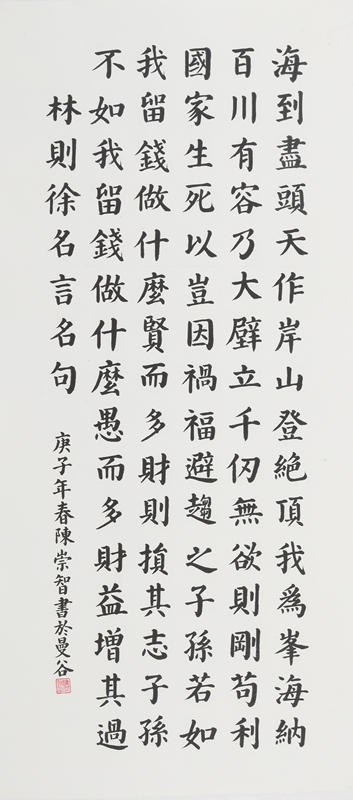 海到盡頭天作岸山登絕頂我為峯海納
百川有容乃大壁立千仞無欲則剛苟利
國家生死以豈因禍福避趨之子孫若如
我留錢做什麼賢而多財則損其志子孫
不如我留錢做什麼愚而多財益增其過
林則徐名言名句
庚子年春陳崇智書於曼谷